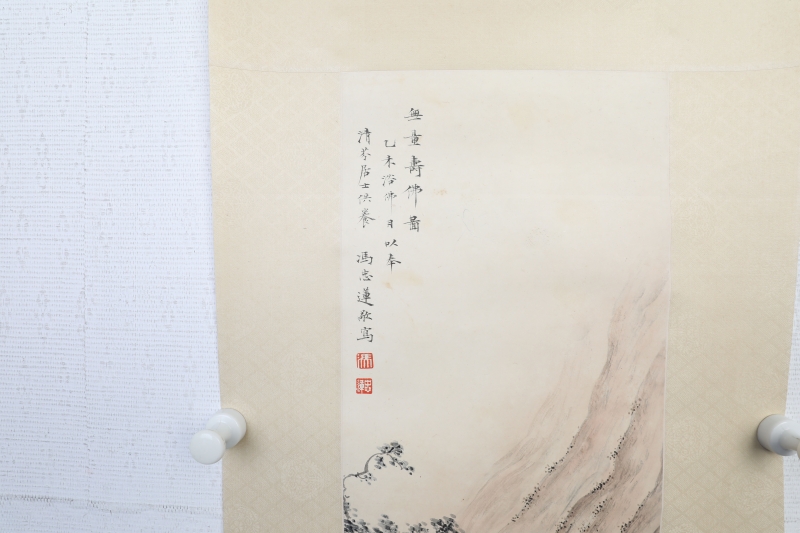 無量壽佛圖
乙未浴佛日以奉
清芬居士供養 馮忠蓮敬寫
馮